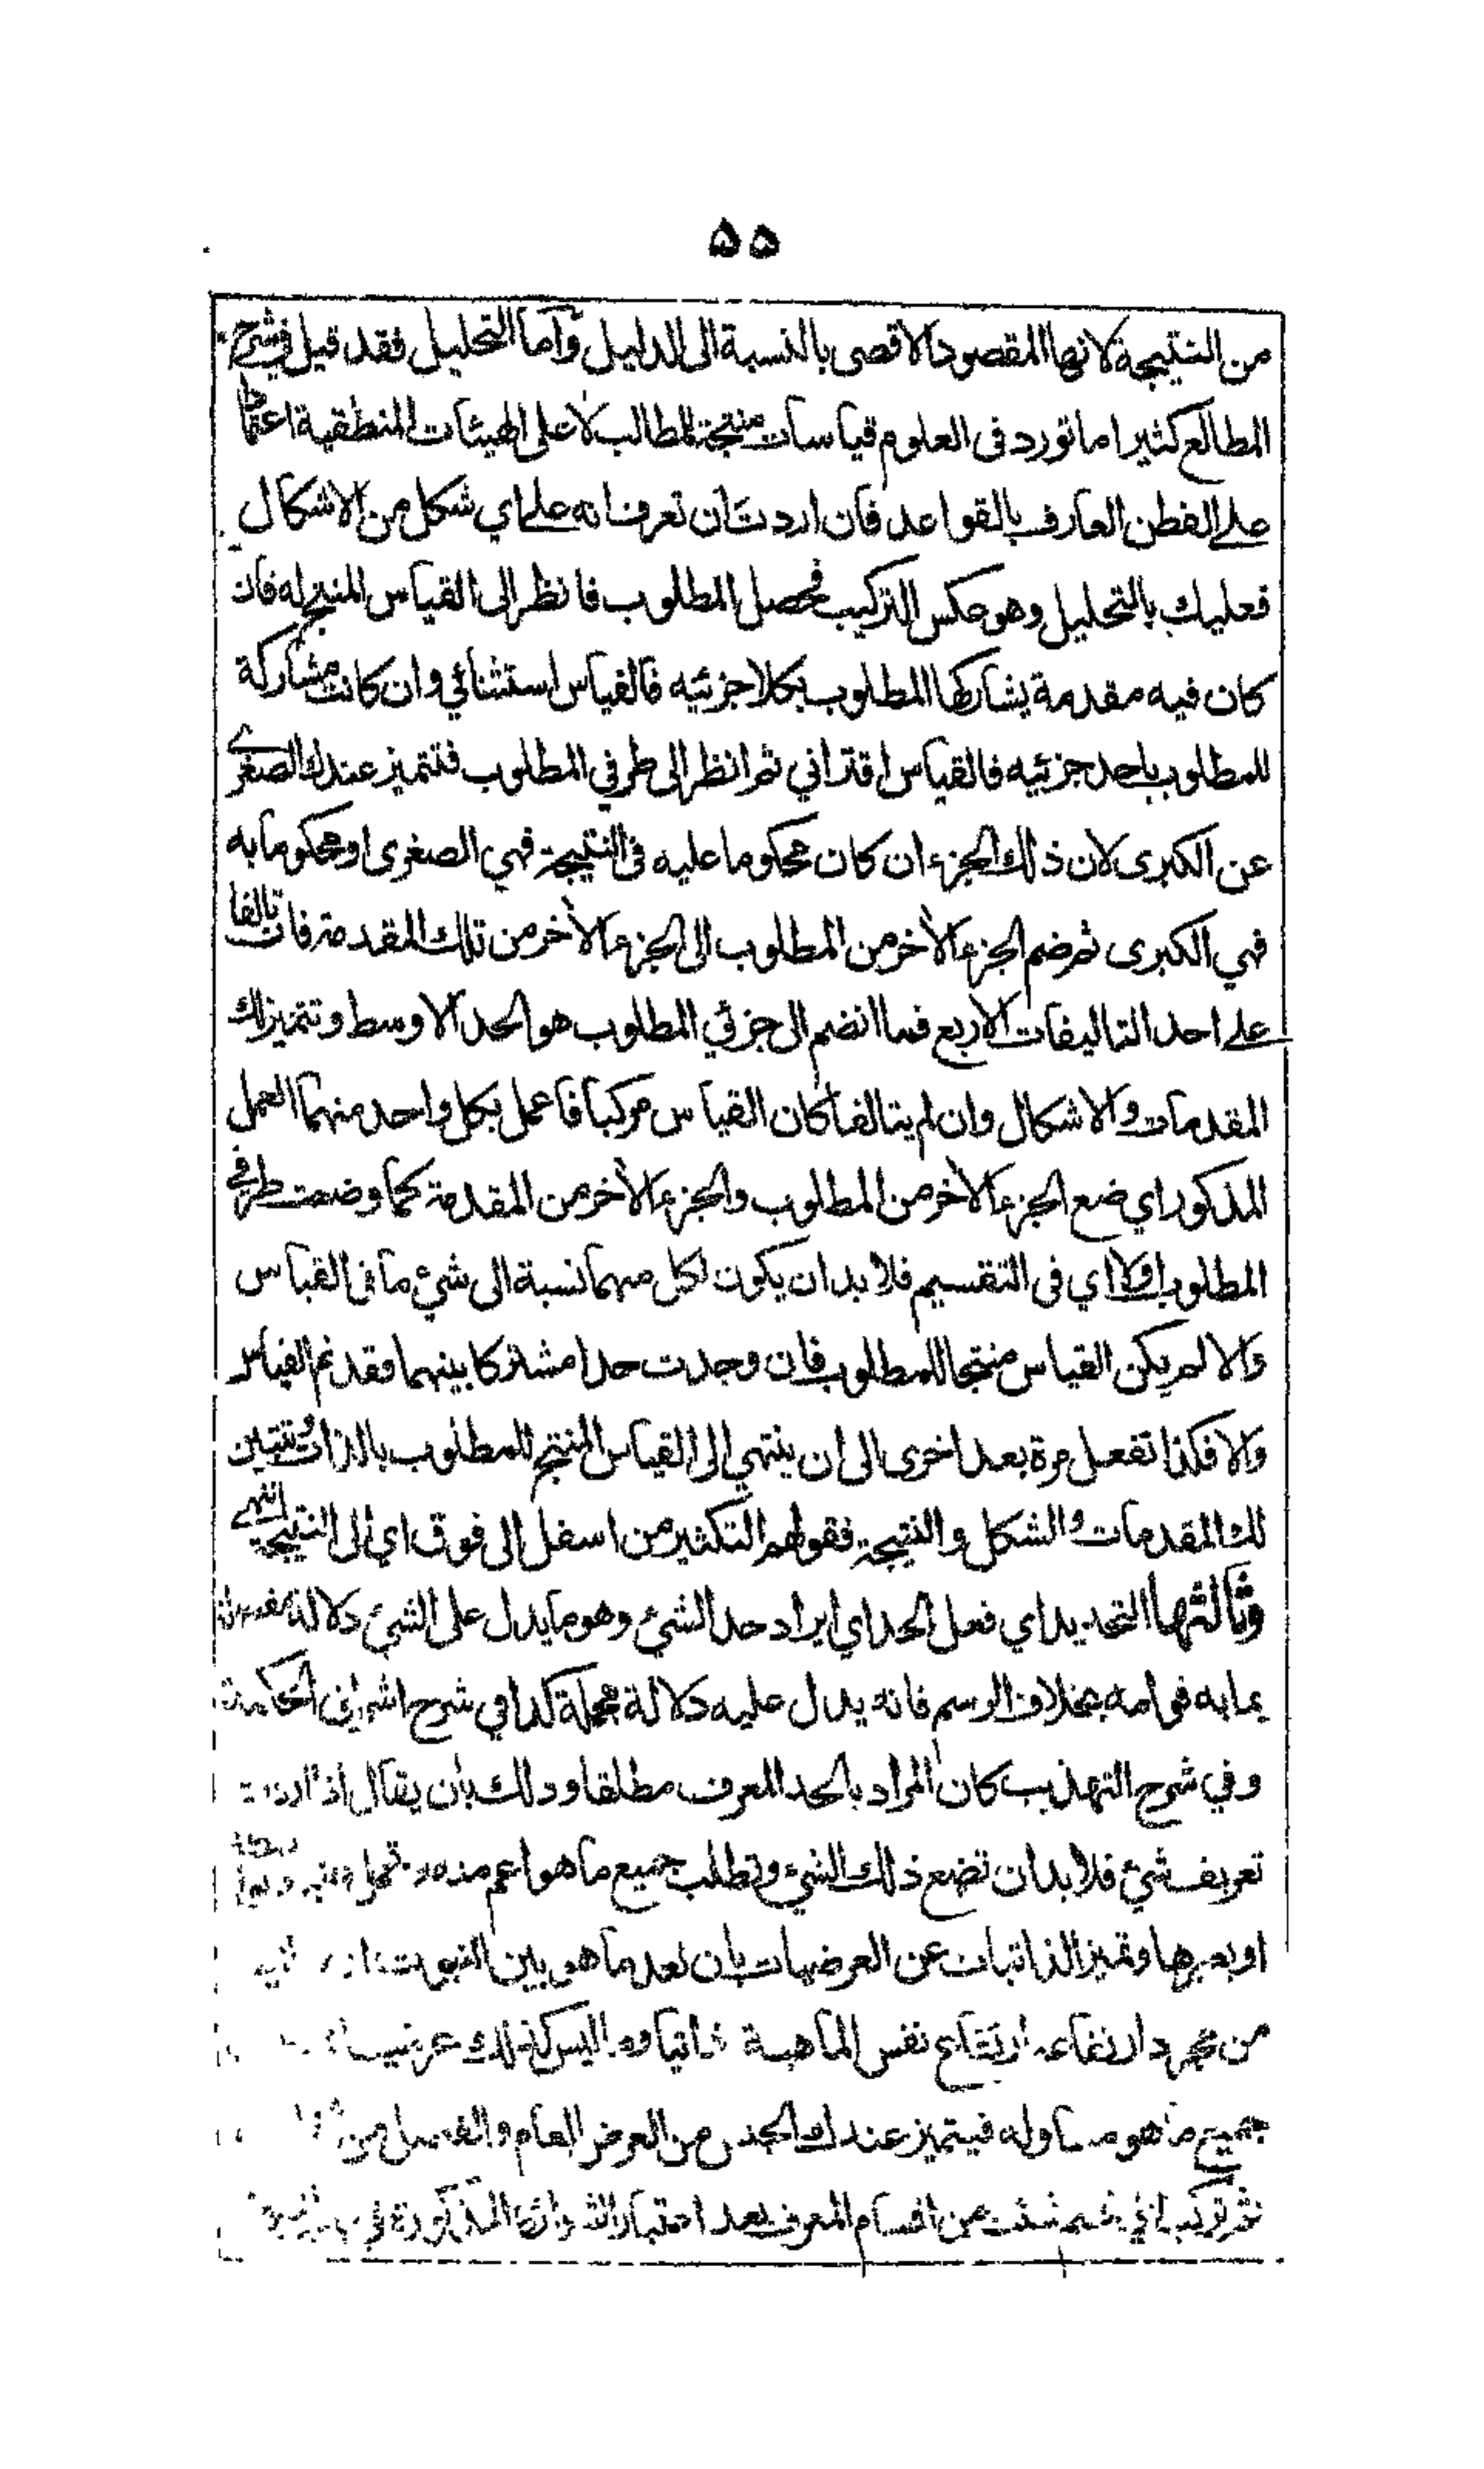 ۵۵
من النتيجة لانها المقصود الاقصى بالنسبة الى الدليل وأما التحليل فقد قيل في شرح
المطالع كثيرا ما تورد فى العلوم قياسات منتجة للمطالب لا على الهيئات المنطقية اعتمادا
على الفطن العارف بالقواعد فان اردت ان تعرف انه على اي شكل من الاشكال
فعليك بالتحليل وهو عكس التركيب فحصل المطلوب فانظر الى القياس المنتج له فان
كان فيه مقدمة يشاركها المطلوب بكلا جزئيه فالقياس استثنائي وان كانت مشاركة
للمطلوب باحد جزئيه فالقياس اقتراني ثم انظر الى طرفي المطلوب فتتميز عندك الصغرى
عن الكبرى لان ذلك الجزء ان كان محكوما عليه فى النتيجة فهي الصغرى او محكوما به
فهي الكبرى ثم ضم الجزء الأخر من المطلوب الى الجزء الأخر من تلك المقدمة فان تالفا
على احد التاليفات الاربع فما انضم الى جزئي المطلوب هو الحد الاوسط وتتميز لك
المقدمات والاشكال وان لم يتالفا كان القياس مركبا فاعمل بكل واحد منهما العمل
المذكور اي ضع الجزء الأخر من المطلوب والجزء الأخر من المقدمة كما وضعت طرفي
المطلوب اولا اي فى التقسيم فلا بد ان يكون لكل منهما نسبة الى شيء ما فى القياس
والا لم يكن القياس منتجا للمطلوب فان وجدت حدا مشتركا بينهما فقد تم القياس
والا فكذا تفعل مرة بعد اخرى الى ان ينتهي الى القياس المنتج للمطلوب بالذات وتتبين
لك المقدمات والشكل والنتيجة فقولهم التكثير من اسفل الى فوق اي الى النتيجة انتهى
وثالثها التحديد اي فعل الحد اي ايراد حد الشيء وهو ما يدل على الشيء دلالة مفصلة
بما به قوامه بخلاف الرسم فانه يدل عليه دلالة مجملة كذا في شرح اشراق الحكمة
وفي شرح التهذيب كان المراد بالحد المعرف مطلقا وذلك بان يقال اذا اردت
تعريف شيء فلا بد ان تضع ذلك الشيء وتطلب جميع ما هو اعم منه وتحمل عليه بواسطة
او بغيرها وتميز الذاتيات عن العرضيات بان تعد ما هو بين الثبوت
من مجرد ارتفاعه ارتفاع نفس الماهية ذاتيا وما ليس كذلك عرضيا
جميع ما هو مساو له فيتميز عندك الجنس من العرض العام والفصل من
ثم تركب اي قسم شئت من اقسام المعرف بعد اعتبار الشرائط المذكورة في